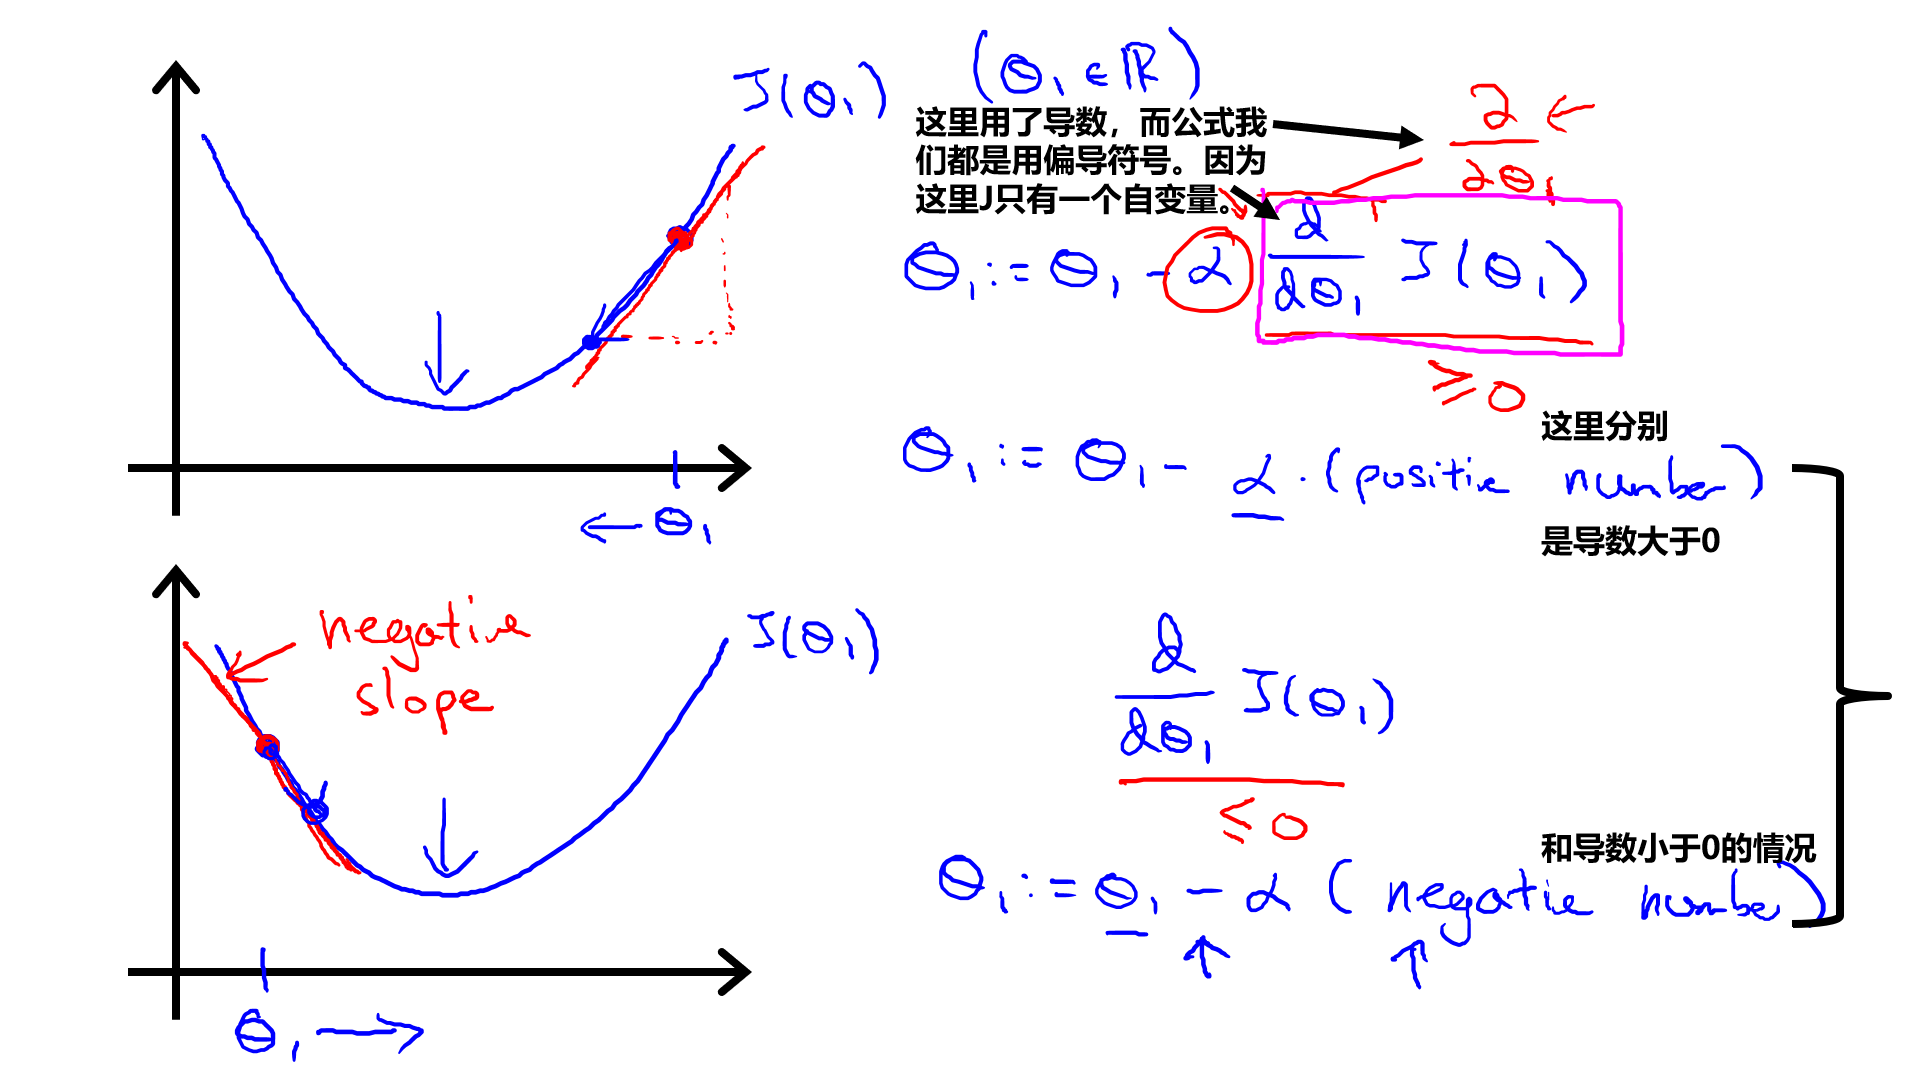 J(θ₁) (θ₁ ∈ ℝ)
这里用了导数，而公式我
们都是用偏导符号。因为
这里J只有一个自变量。
∂/∂θ₁ ←
θ₁ := θ₁ - α d/dθ₁ J(θ₁)
≥ 0
这里分别
θ₁ := θ₁ - α · (positive number)
← θ₁
是导数大于0
negative
slope
J(θ₁)
d/dθ₁ J(θ₁)
≤ 0
和导数小于0的情况
θ₁ := θ₁ - α (negative number)
θ₁ →